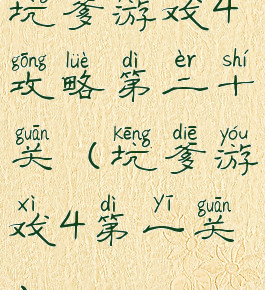 坑爹游戏4
gōng lüè dì èr shí
攻略第二十
guān kēng diē yóu
关(坑爹游
xì dì yī guān
戏4第一关
)